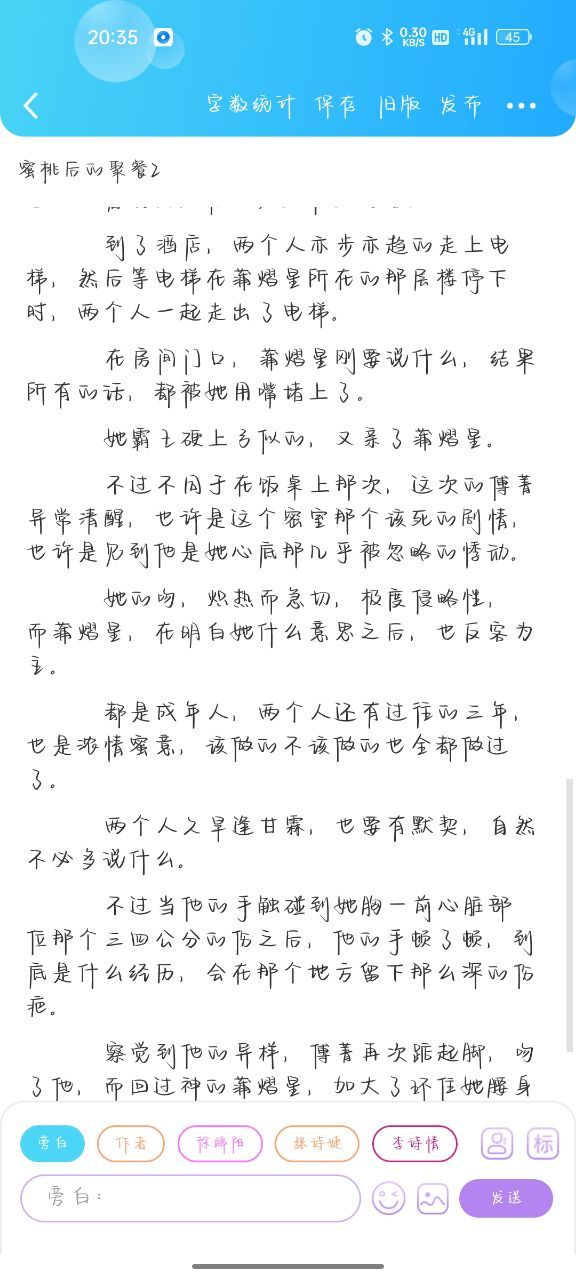 20:35
0.30
KB/S
HD
4G
45
字数统计 保存 旧版 发布
蜜桃后的聚餐2
到了酒店，两个人亦步亦趋的走上电
梯，然后等电梯在蒲熠星所在的那层楼停下
时，两个人一起走出了电梯。
在房间门口，蒲熠星刚要说什么，结果
所有的话，都被她用嘴堵上了。
她霸王硬上弓似的，又亲了蒲熠星。
不过不同于在饭桌上那次，这次的傅菁
异常清醒，也许是这个密室那个该死的剧情，
也许是见到他是她心底那几乎被忽略的悸动。
她的吻，炽热而急切，极度侵略性，
而蒲熠星，在明白她什么意思之后，也反客为
主。
都是成年人，两个人还有过往的三年，
也是浓情蜜意，该做的不该做的也全都做过
了。
两个人久旱逢甘霖，也要有默契，自然
不必多说什么。
不过当他的手触碰到她胸一前心脏部
位那个三四公分的伤之后，他的手顿了顿，到
底是什么经历，会在那个地方留下那么深的伤
疤。
察觉到他的异样，傅菁再次踮起脚，吻
了他，而回过神的蒲熠星，加大了环住她腰身
旁白 作者 徐端阳 张诗婕 李诗情 标
旁白：
发送